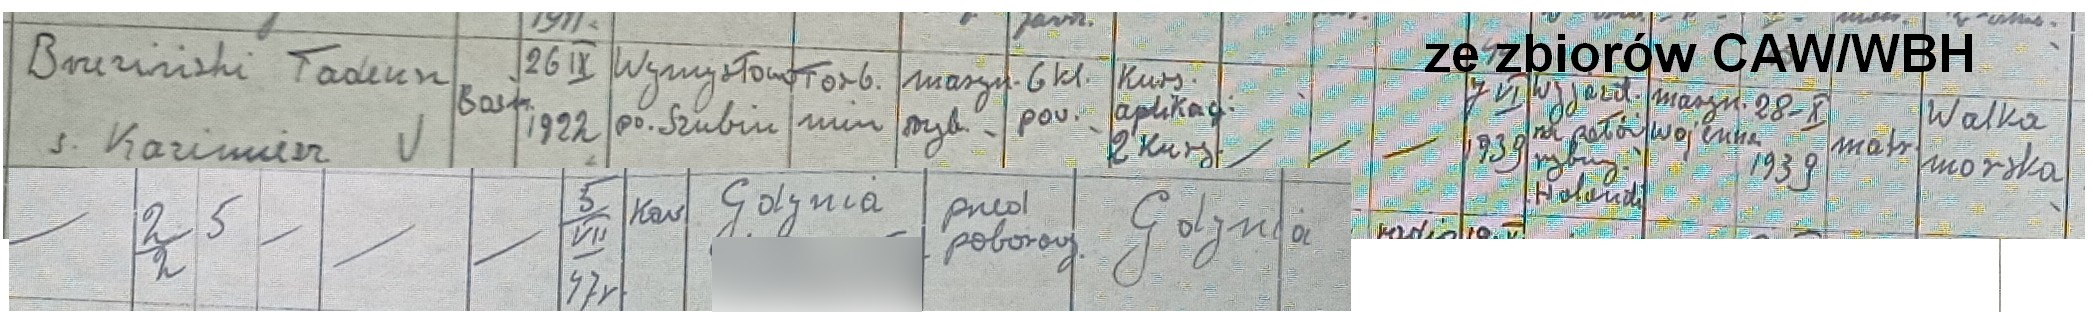 1911.
ze zbiorów CAW/WBH
Brzeziński Tadeusz
s. Kazimierz V
Bosm.
26 IX
1922
Wymysłowo
po. Szubin
Torb.
min
maszyn.
ryb.
6 kl.
pow.
Kurs.
aplikac:
2 Kurs
— — —
7 VI
1939
Wyjazd.
na połów
rybny.
Holandi
maryn.
wojenna
28-X
1939
matr.
Walka
morska
— 2/2 5 — — —
5
VII
47r.
Kaw
Gdynia
przed
poborowy.
Gdynia